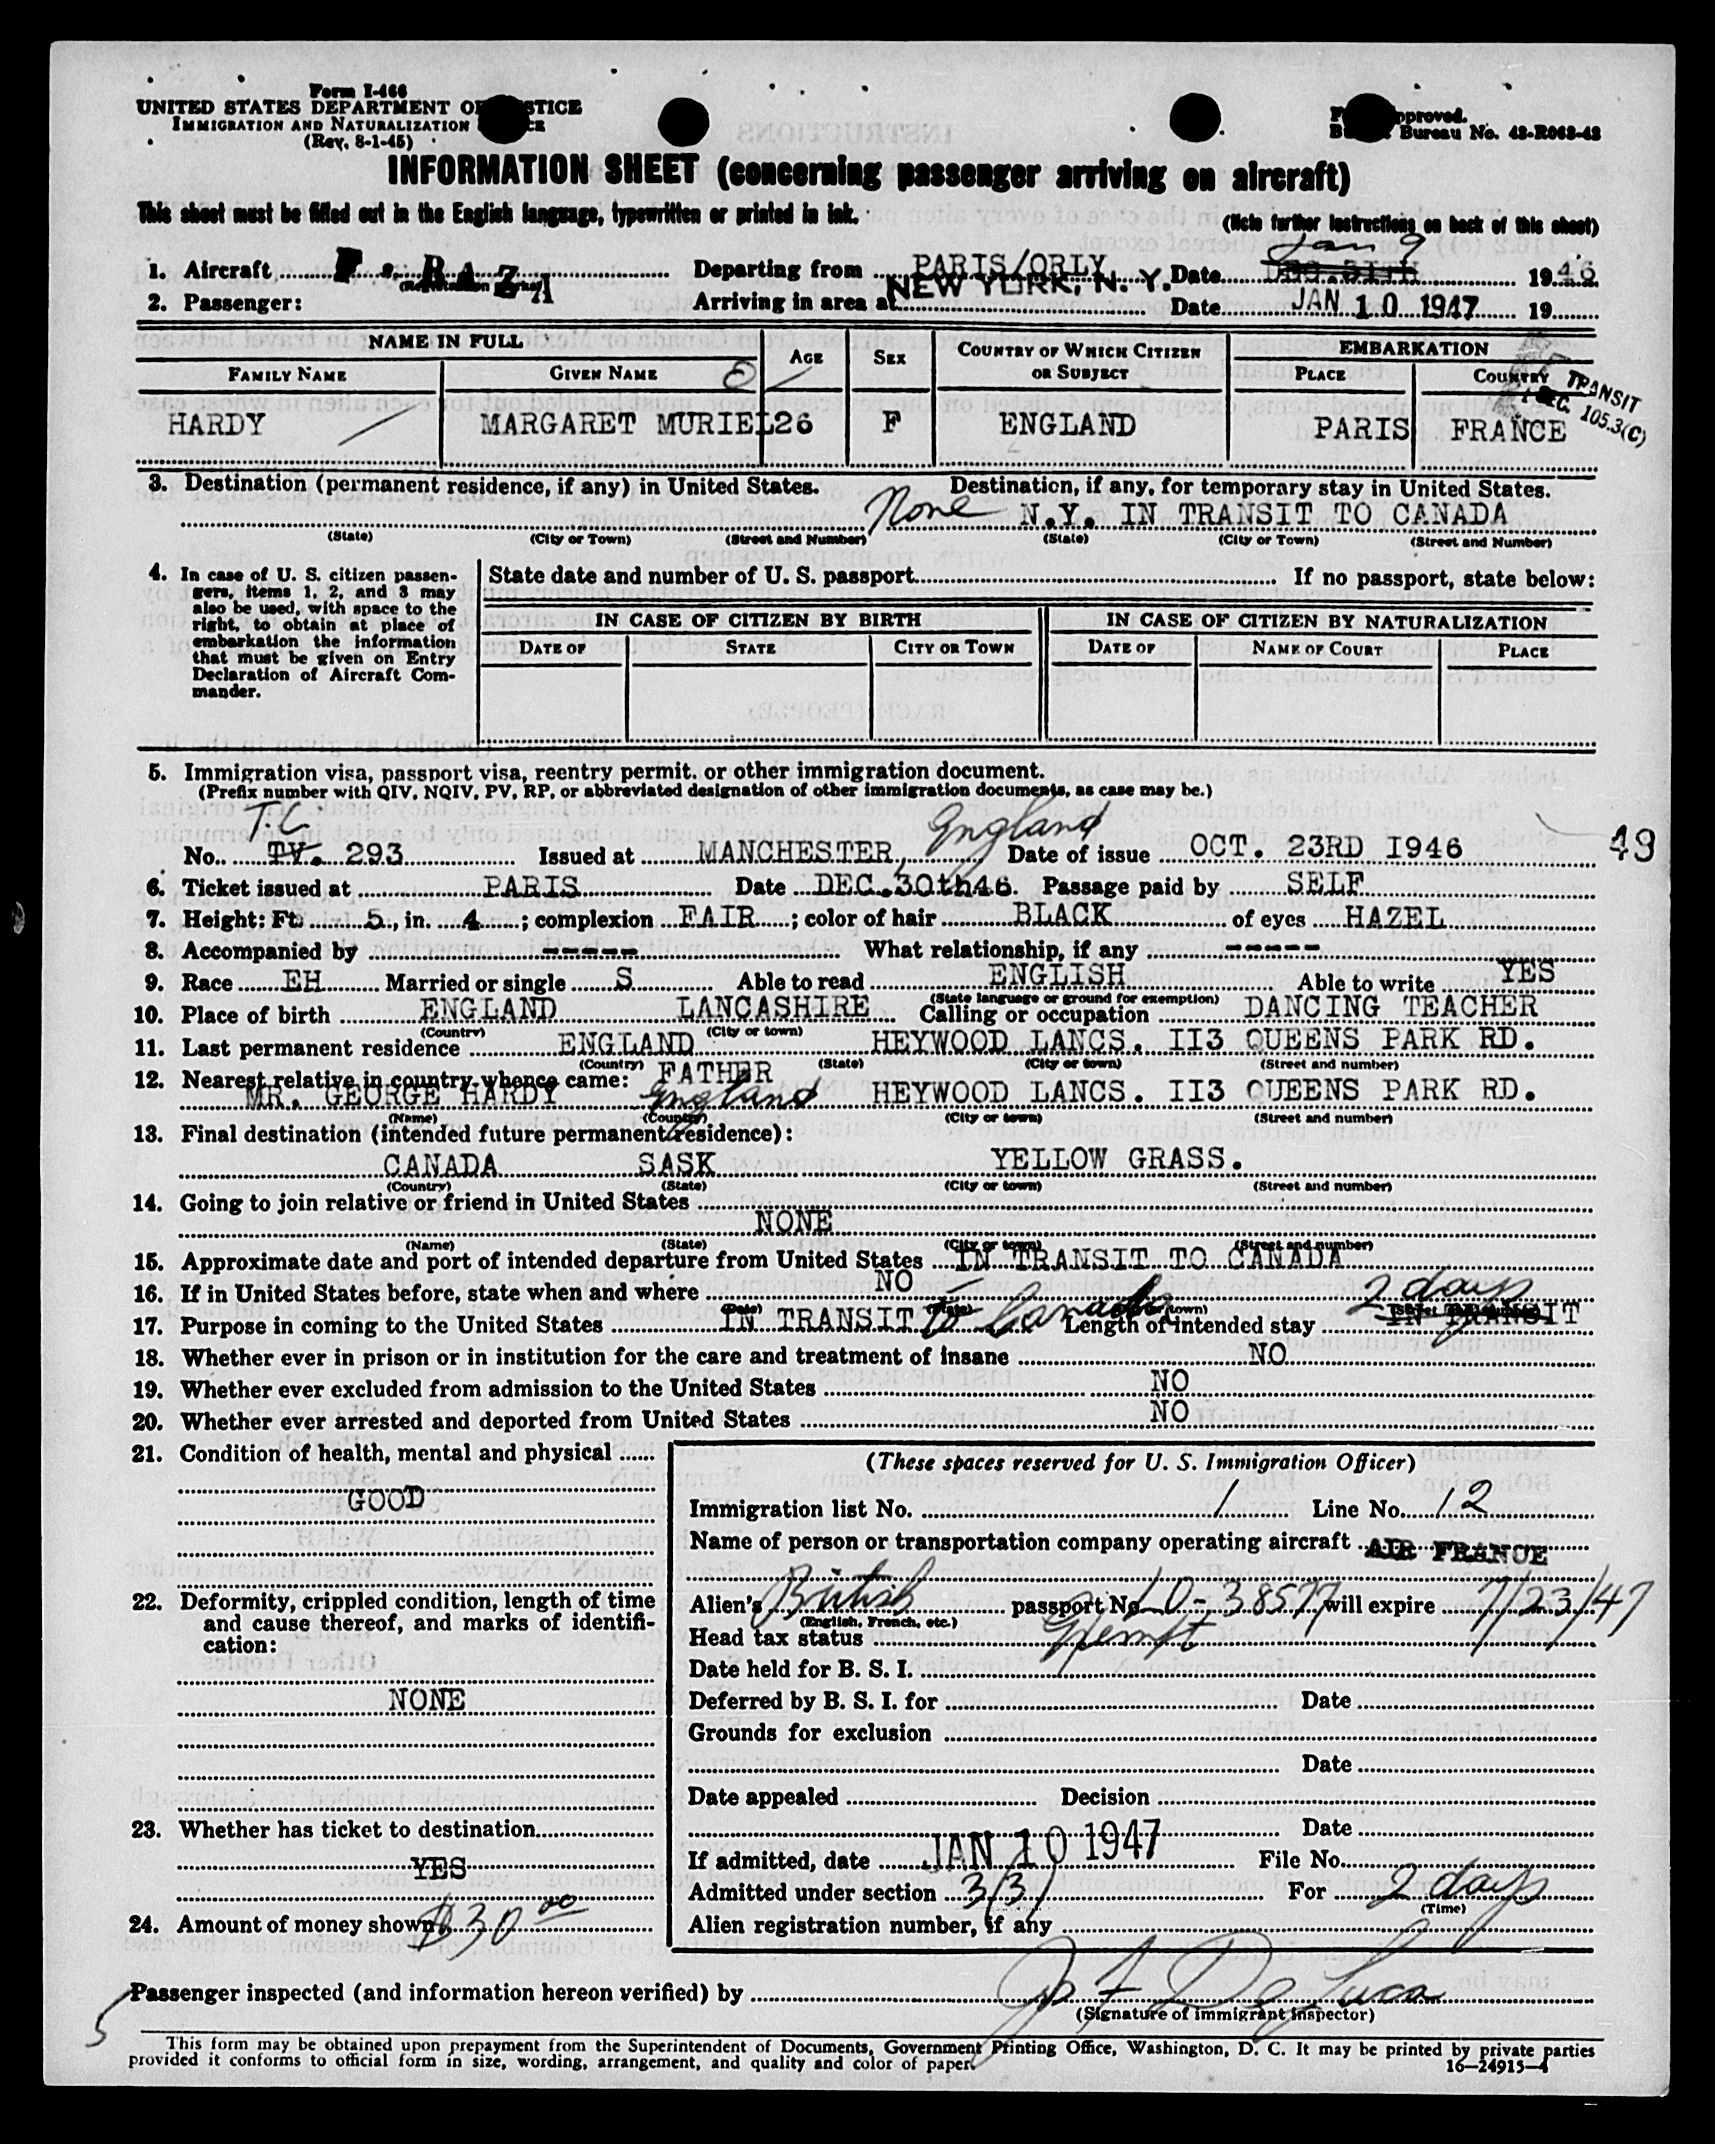 Form I-466
UNITED STATES DEPARTMENT OF JUSTICE
IMMIGRATION AND NATURALIZATION
(Rev. 8-1-45)
Approved.
Bureau No. 43-R063-43
INFORMATION SHEET (concerning passenger arriving on aircraft)
This sheet must be filled out in the English language, typewritten or printed in ink.
(Note further instructions on back of this sheet)
Jan 9
1. Aircraft F. BAZA Departing from PARIS/ORLY Date DEC. 3ITH 1946
(Registration marks)
2. Passenger: Arriving in area at NEW YORK, N. Y. Date JAN 10 1947 19
NAME IN FULL AGE SEX COUNTRY OF WHICH CITIZEN OR SUBJECT EMBARKATION
FAMILY NAME GIVEN NAME PLACE COUNTRY
TRANSIT
DEC. 105.3(C)
HARDY MARGARET MURIEL 26 F ENGLAND PARIS FRANCE
3. Destination (permanent residence, if any) in United States. Destination, if any, for temporary stay in United States.
None N.Y. IN TRANSIT TO CANADA
(State) (City or Town) (Street and Number) (State) (City or Town) (Street and Number)
4. In case of U. S. citizen passengers, items 1, 2, and 3 may also be used, with space to the right, to obtain at place of embarkation the information that must be given on Entry Declaration of Aircraft Commander.
State date and number of U. S. passport If no passport, state below:
IN CASE OF CITIZEN BY BIRTH IN CASE OF CITIZEN BY NATURALIZATION
DATE OF STATE CITY OR TOWN DATE OF NAME OF COURT PLACE
5. Immigration visa, passport visa, reentry permit, or other immigration document.
(Prefix number with QIV, NQIV, PV, RP, or abbreviated designation of other immigration documents, as case may be.)
T.C. England
No. TV. 293 Issued at MANCHESTER, Date of issue OCT. 23RD I946 49
6. Ticket issued at PARIS Date DEC.30th46. Passage paid by SELF
7. Height: Ft. 5, in. 4; complexion FAIR; color of hair BLACK of eyes HAZEL
8. Accompanied by ----- What relationship, if any -----
9. Race EH Married or single S Able to read ENGLISH Able to write YES
(State language or ground for exemption)
10. Place of birth ENGLAND LANCASHIRE Calling or occupation DANCING TEACHER
(Country) (City or town)
11. Last permanent residence ENGLAND HEYWOOD LANCS. II3 QUEENS PARK RD.
(Country) (State) (City or town) (Street and number)
12. Nearest relative in country whence came: FATHER
MR. GEORGE HARDY England HEYWOOD LANCS. II3 QUEENS PARK RD.
(Name) (Country) (City or town) (Street and number)
13. Final destination (intended future permanent residence):
CANADA SASK YELLOW GRASS.
(Country) (State) (City or town) (Street and number)
14. Going to join relative or friend in United States
NONE
(Name) (State) (City or town) (Street and number)
15. Approximate date and port of intended departure from United States IN TRANSIT TO CANADA
16. If in United States before, state when and where NO
(Date) (State) (City or town) (Street and number)
2 days
17. Purpose in coming to the United States IN TRANSIT to Canada Length of intended stay IN TRANSIT
18. Whether ever in prison or in institution for the care and treatment of insane NO
19. Whether ever excluded from admission to the United States NO
20. Whether ever arrested and deported from United States NO
21. Condition of health, mental and physical
GOOD
22. Deformity, crippled condition, length of time and cause thereof, and marks of identification:
NONE
23. Whether has ticket to destination
YES
24. Amount of money shown $30 00
(These spaces reserved for U. S. Immigration Officer)
Immigration list No. 1 Line No. 12
Name of person or transportation company operating aircraft AIR FRANCE
Alien's British passport No. LO-38577 will expire 7/23/47
(English, French, etc.)
Head tax status Exempt
Date held for B. S. I.
Deferred by B. S. I. for Date
Grounds for exclusion
Date
Date appealed Decision
Date
If admitted, date JAN 10 1947 File No.
Admitted under section 3(3) For 2 days
(Time)
Alien registration number, if any
Passenger inspected (and information hereon verified) by De Luca
(Signature of immigrant inspector)
5
This form may be obtained upon prepayment from the Superintendent of Documents, Government Printing Office, Washington, D. C. It may be printed by private parties
provided it conforms to official form in size, wording, arrangement, and quality and color of paper.
16—24915-4